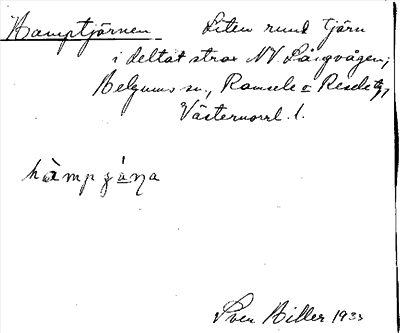 Hamptjärnen Liten rund tjärn
i deltat strax NV. Långvågen,
Helgums sn., Ramsele o Resele tg,
Västernorrl. l.
Sven Hiller 1935